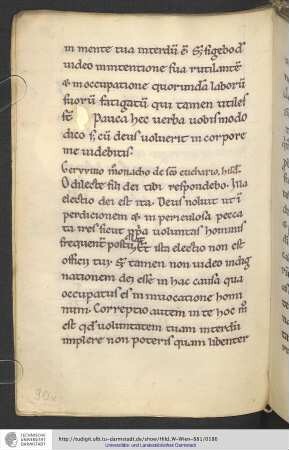 in mente tua interdū ē. S; fige bod
video in intentione sua rutilantē
& in occupatione quorundā laborū
suorū fatigatū qui tamen utiles
s̄t. Pauca hec verba vobis modo
dico s; cū deus voluerit in corpore
me videbitis.
monacho de sc̄o euchario, hild.
O dilecte fili dei tibi respondebo. Illa
electio dei est ita. Deus noluit ut ī
perdicionem & in periculosa pecca
ta ires sicut ꝓpa voluntas hominis
frequent̄ postulat & ista electio non est
offen tuy S; tamen non video indig
nationem dei esse in hac causa qua
occupatus es in invocatione homi
num. Correptio autem in te hoc m̊
est qd̄ voluntatem tuam interdū
implere non poteris quam libenter
30v
TECHNISCHE
UNIVERSITÄT
DARMSTADT
http://tudigit.ulb.tu-darmstadt.de/show/Hild_N-Wien-881/0180
Universitäts- und Landesbibliothek Darmstadt